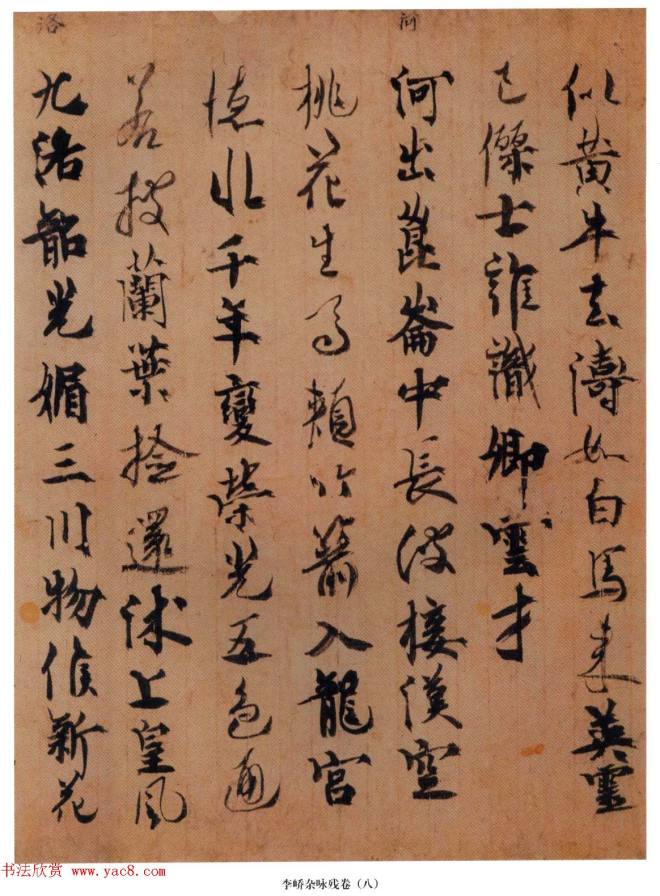 河
洛
似黄牛去濤如白馬来英靈
已傑士誰識卿雲才
河出崑崙中長波接漢空
桃花生馬頰竹箭入龍宮
德水千年變榮光五色通
若披蘭葉撿還沐上皇風
九洛韶光媚三川物候新花
书法欣赏 www.yac8.com
李峤杂咏残卷（八）